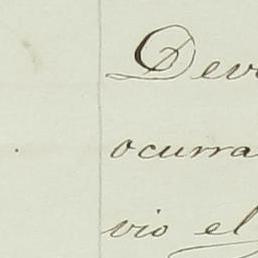 Dev
ocurra
vio el